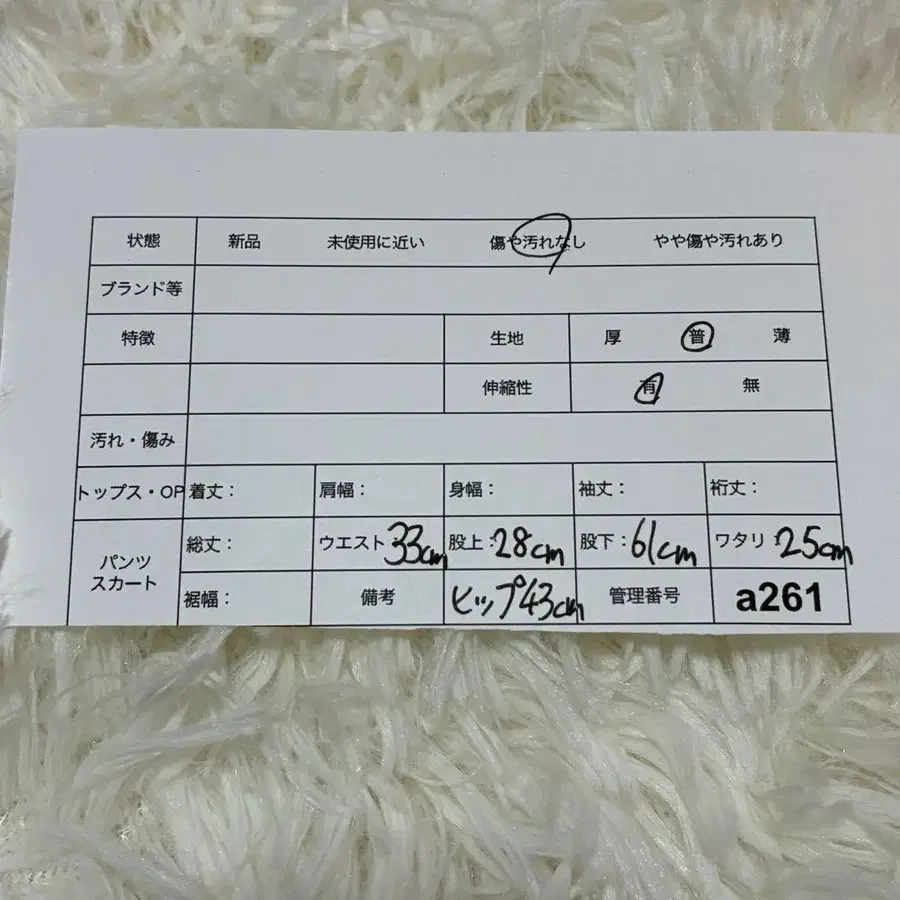 状態 新品 未使用に近い 傷や汚れなし やや傷や汚れあり
ブランド等
特徴 生地 厚 普 薄
伸縮性 有 無
汚れ・傷み
トップス・OP 着丈： 肩幅： 身幅： 袖丈： 裄丈：
パンツ スカート
総丈： ウエスト：33cm 股上：28cm 股下：61cm ワタリ：25cm
裾幅： 備考 ヒップ43cm 管理番号 a261